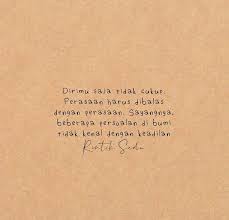 Dirimu saja tidak cukup.
Perasaan harus dibalas
dengan perasaan. Sayangnya,
beberapa persoalan di bumi
tidak kenal dengan keadilan
Rintik Sedu